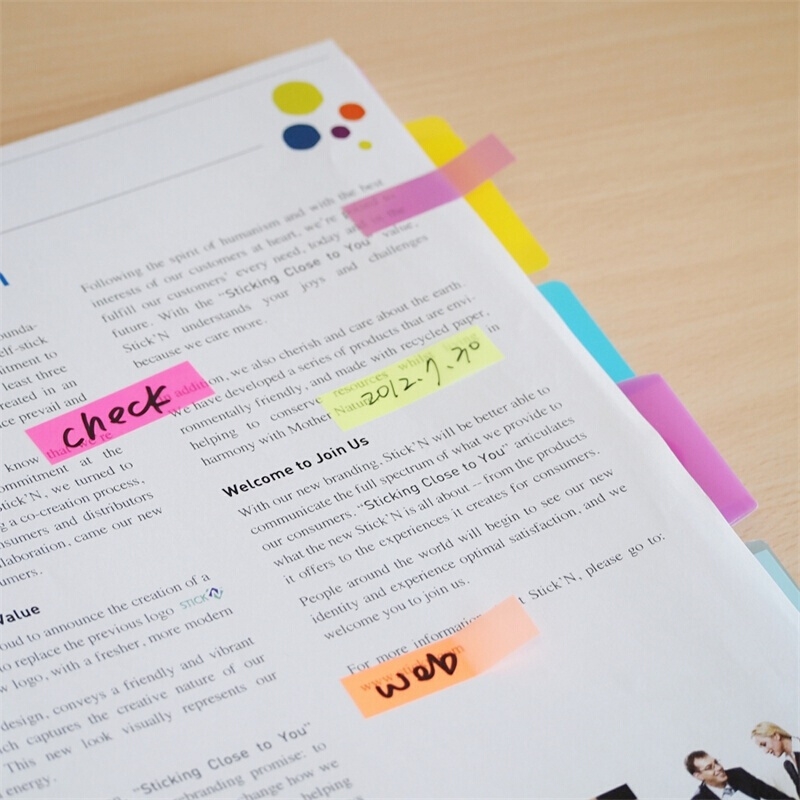 Following the spirit of humanism and with the best
interests of our customers at heart, we're
fulfill our customers' every need, today and in the
future. With the "Sticking Close to You" value,
Stick'N understands your joys and challenges
because we care more.
In addition, we also cherish and care about the earth.
We have developed a series of products that are envi-
ronmentally friendly, and made with recycled paper,
helping to conserve resources whilst in
harmony with Mother Nature.
2012.7.30
Welcome to Join Us
With our new branding, Stick'N will be better able to
communicate the full spectrum of what we provide to
our consumers. "Sticking Close to You" articulates
what the new Stick'N is all about – from the products
it offers to the experiences it creates for consumers.
People around the world will begin to see our new
identity and experience optimal satisfaction, and we
welcome you to join us.
For more information Stick'N, please go to:
web
self-stick
least three
in an
prevail and
check
know that we're
commitment at the
Stick'N, we turned to
g a co-creation process,
consumers and distributors
collaboration, came our new
Value
proud to announce the creation of a
to replace the previous logo STICK'N
logo, with a fresher, more modern
design, conveys a friendly and vibrant
captures the creative nature of our
This new look visually represents our
energy.
"Sticking Close to You"
rebranding promise: to
change how we
helping